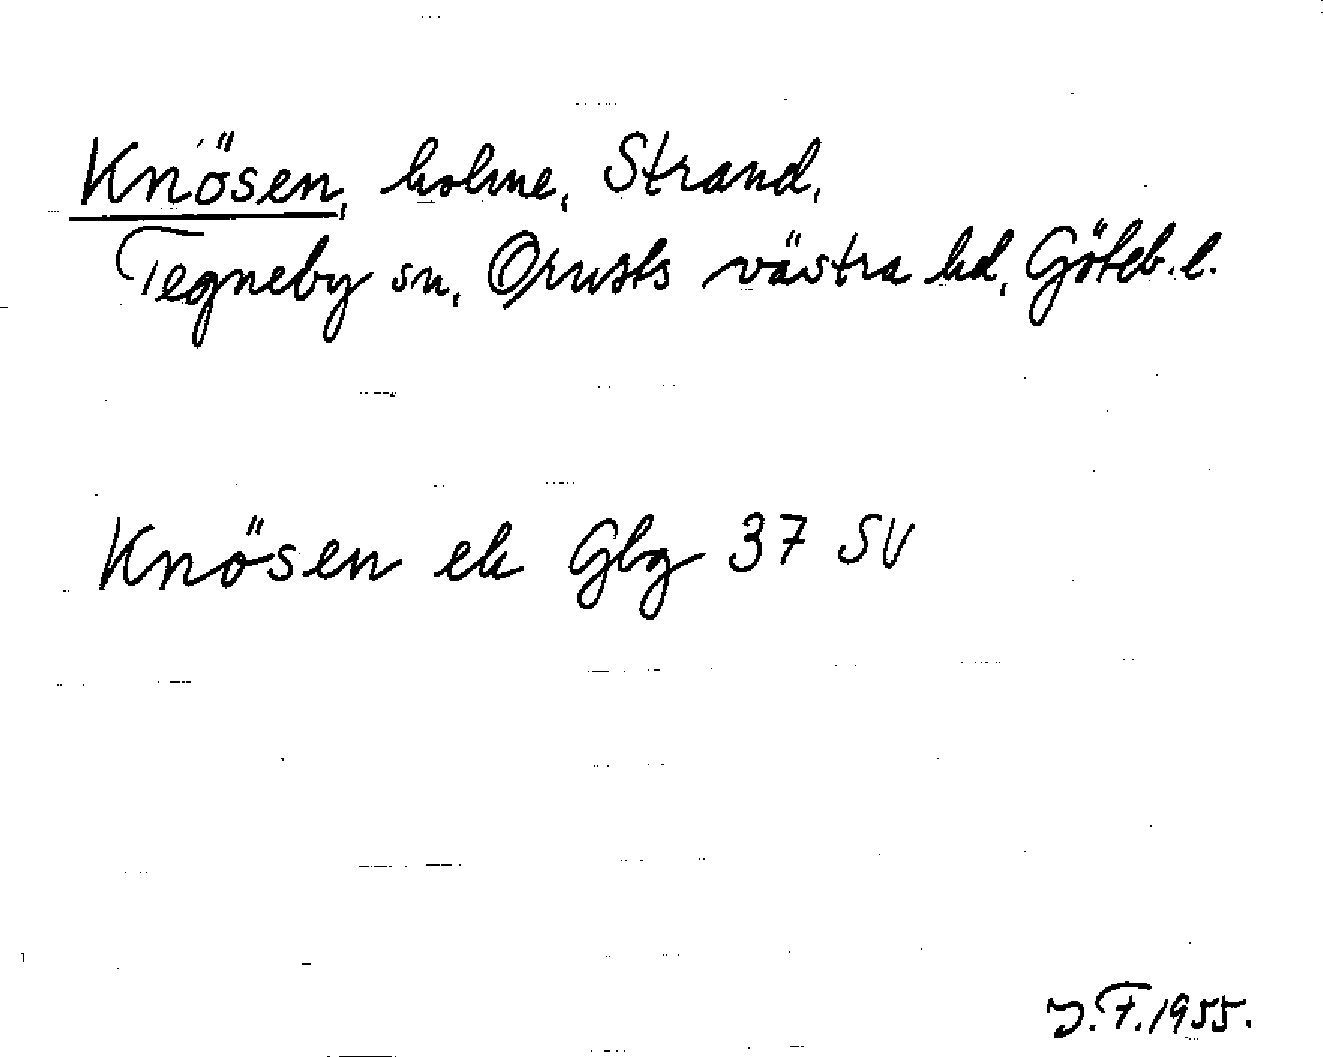 Knösen, holme, Strand,
Tegneby sn, Orusts västra hd, Göteb. l.
Knösen ek Gbg 37 SV
J.F. 1955.